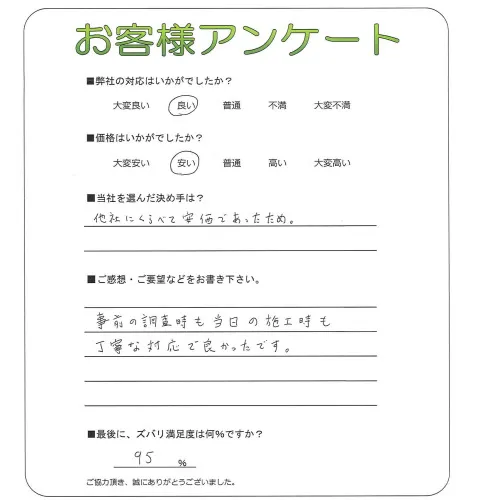 お客様アンケート
■弊社の対応はいかがでしたか？
大変良い 良い 普通 不満 大変不満
■価格はいかがでしたか？
大変安い 安い 普通 高い 大変高い
■当社を選んだ決め手は？
他社にくらべて安価であったため。
■ご感想・ご要望などをお書き下さい。
事前の調査時も当日の施工時も
丁寧な対応で良かったです。
■最後に、ズバリ満足度は何%ですか？
95 %
ご協力頂き、誠にありがとうございました。